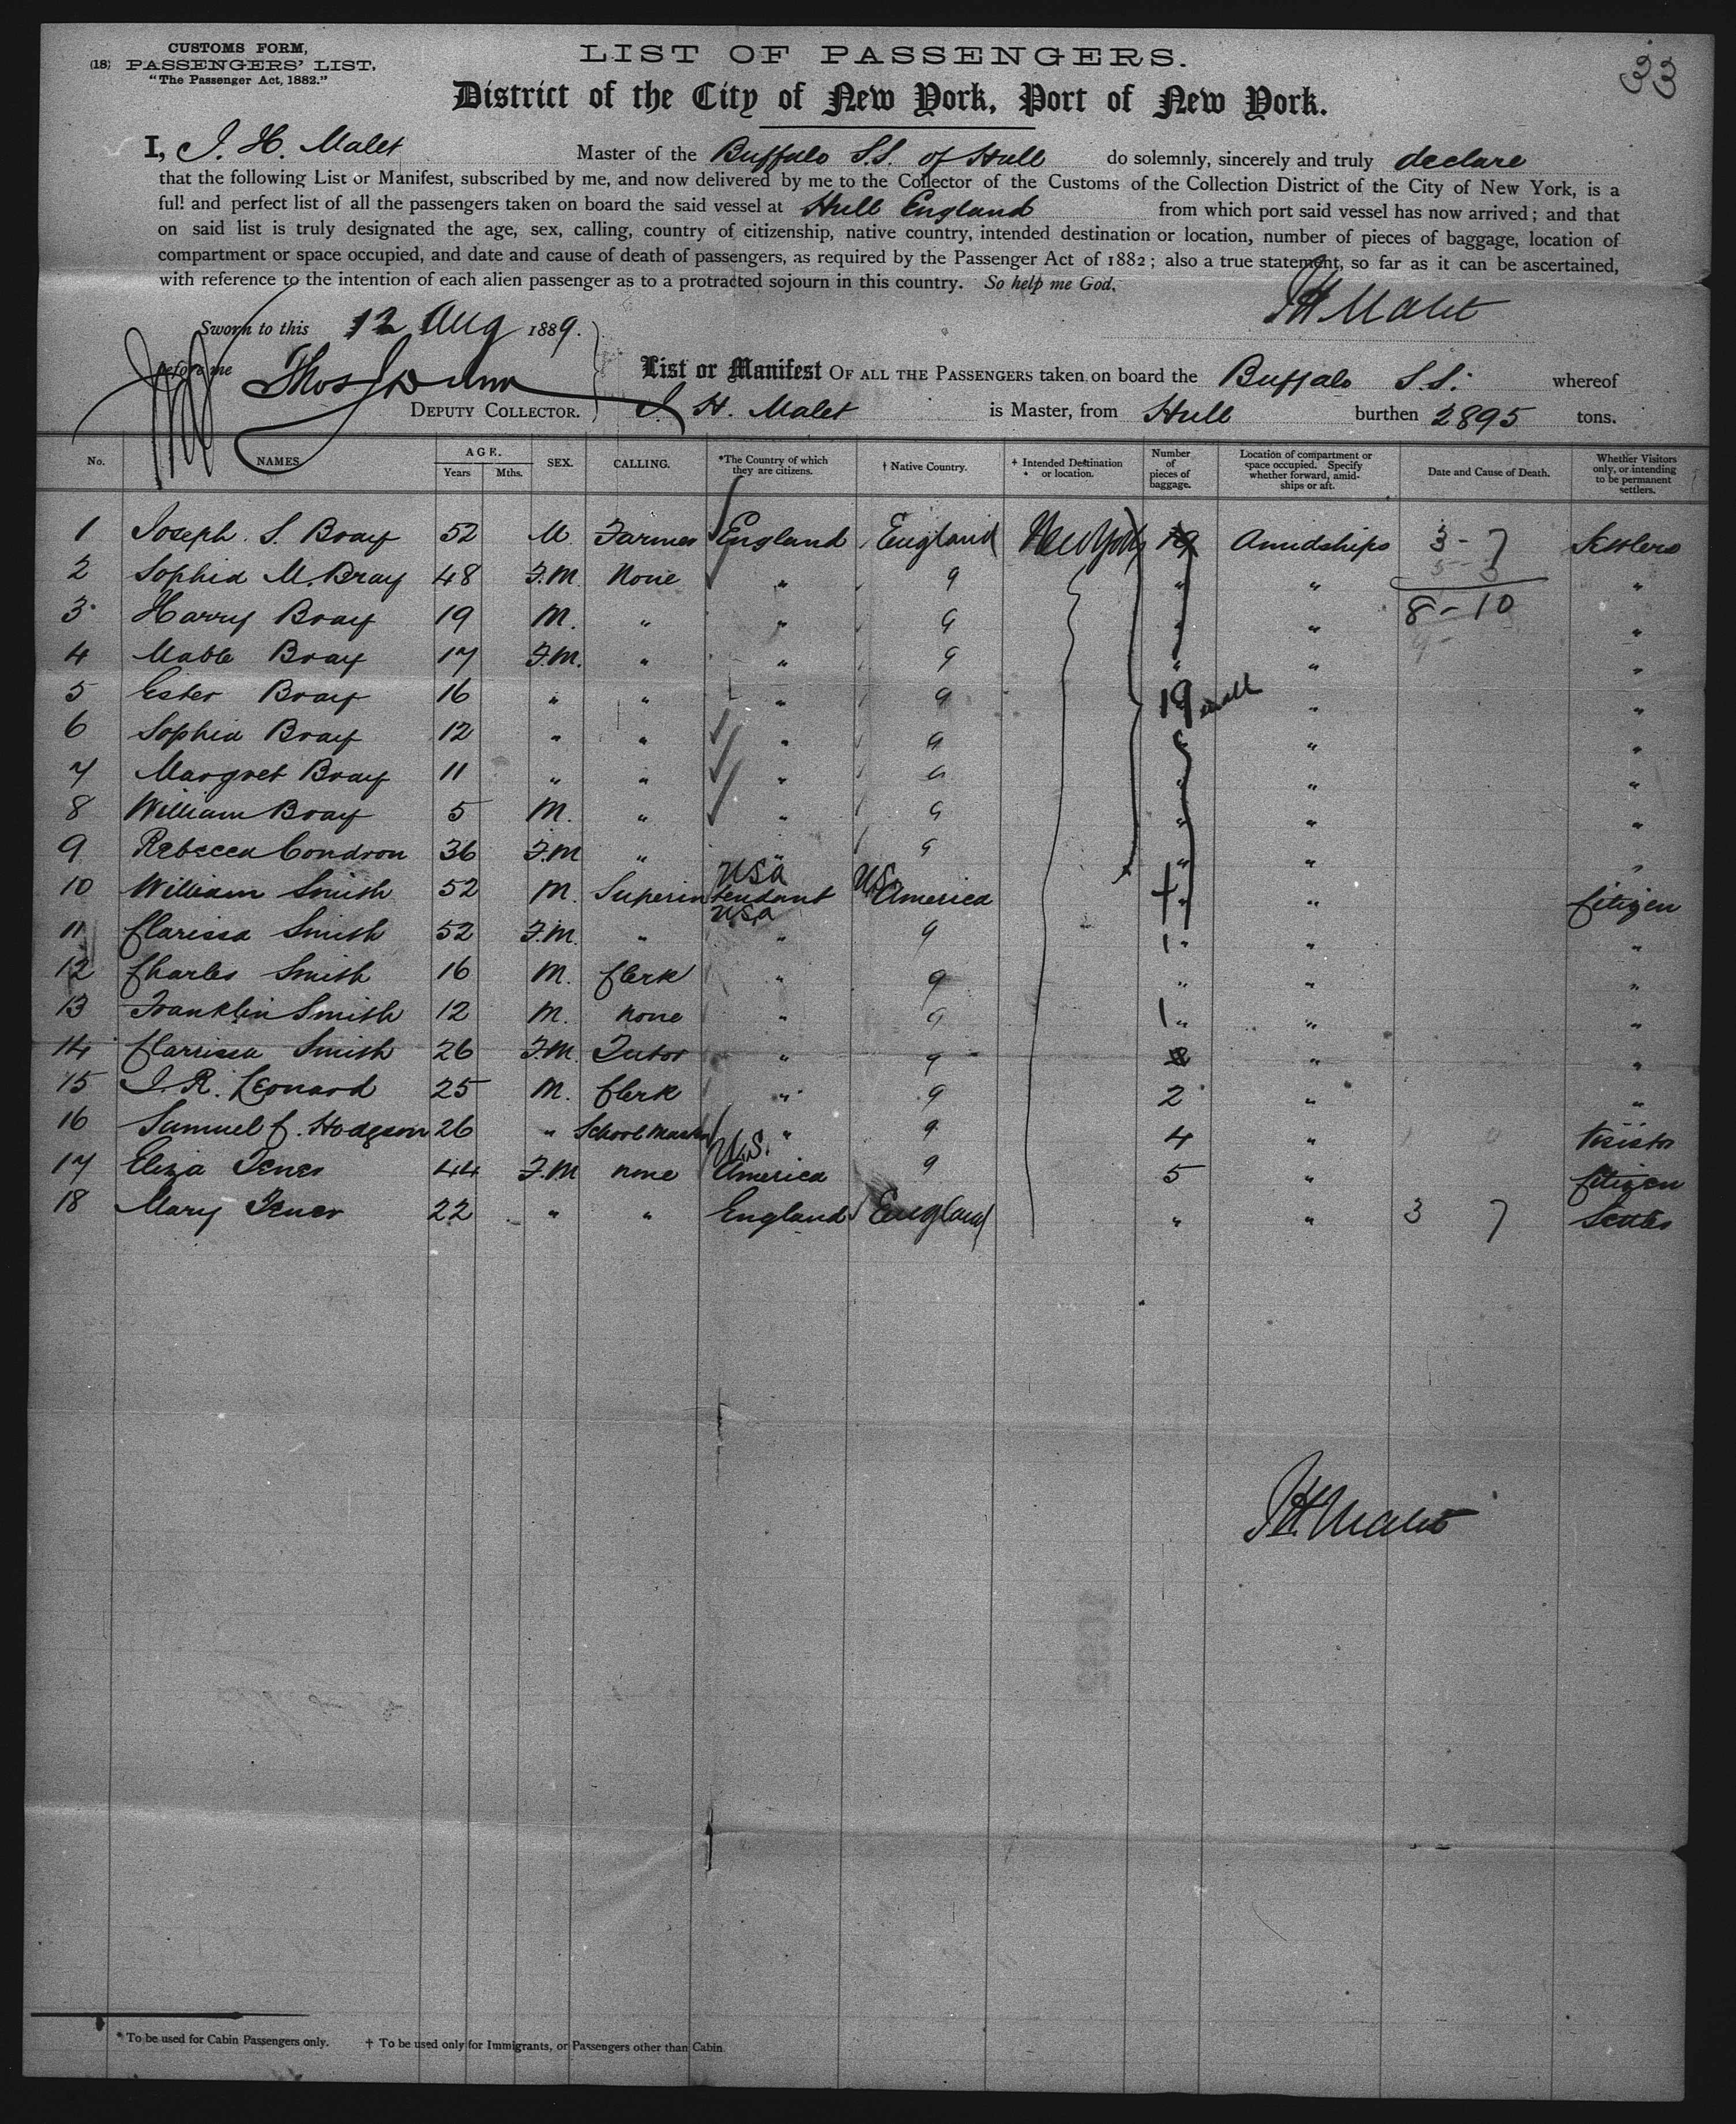 CUSTOMS FORM,
(18) PASSENGERS' LIST,
"The Passenger Act, 1882."
LIST OF PASSENGERS.
33
District of the City of New York, Port of New York.
I, J. H. Malet Master of the Buffalo S.S. of Hull do solemnly, sincerely and truly declare
that the following List or Manifest, subscribed by me, and now delivered by me to the Collector of the Customs of the Collection District of the City of New York, is a
full and perfect list of all the passengers taken on board the said vessel at Hull England from which port said vessel has now arrived; and that
on said list is truly designated the age, sex, calling, country of citizenship, native country, intended destination or location, number of pieces of baggage, location of
compartment or space occupied, and date and cause of death of passengers, as required by the Passenger Act of 1882; also a true statement, so far as it can be ascertained,
with reference to the intention of each alien passenger as to a protracted sojourn in this country. So help me God.
JH Malet
Sworn to this 12 Aug 1889.
before me Thos
DEPUTY COLLECTOR.
List or Manifest OF ALL THE PASSENGERS taken on board the Buffalo S.S. whereof
J H. Malet is Master, from Hull burthen 2895 tons.
No. NAMES. AGE. Years Mths. SEX. CALLING. *The Country of which they are citizens. † Native Country. † Intended Destination or location. Number of pieces of baggage. Location of compartment or space occupied. Specify whether forward, amidships or aft. Date and Cause of Death. Whether Visitors only, or intending to be permanent settlers.
1 Joseph. S. Bray 52 M Farmer England England New York 19 Amidships 3 - 7 Settlers
2 Sophia M. Bray 48 F.M. None " " " " " 5 - 3 "
3 Harry Bray 19 M. " " " " " 8 - 10 "
4 Mable Bray 17 F.M. " " " " " "
5 Ester Bray 16 " " " " 19 in all " "
6 Sophia Bray 12 " " " " " "
7 Margret Bray 11 " " " " " " "
8 William Bray 5 M. " " " " " "
9 Rebecca Condron 36 F.M " " " " " "
10 William Smith 52 M. Superintendant USA US America " " Citizen
11 Clarissa Smith 52 F.M. " USA " " 1 " " "
12 Charles Smith 16 M. Clerk " " " " "
13 Franklin Smith 12 M. none " " 1 " " "
14 Clarissa Smith 26 F.M. Tutor " " " "
15 J. R. Leonard 25 M. Clerk " " 2 " "
16 Samuel C. Hodgson 26 " School Master " " 4 " Visitor
17 Eliza Tener 44 F.M none U.S. America " 5 " Citizen
18 Mary Tener 22 " " England England " " 3 7 Settler
JH. Malet
* To be used for Cabin Passengers only. † To be used only for Immigrants, or Passengers other than Cabin.